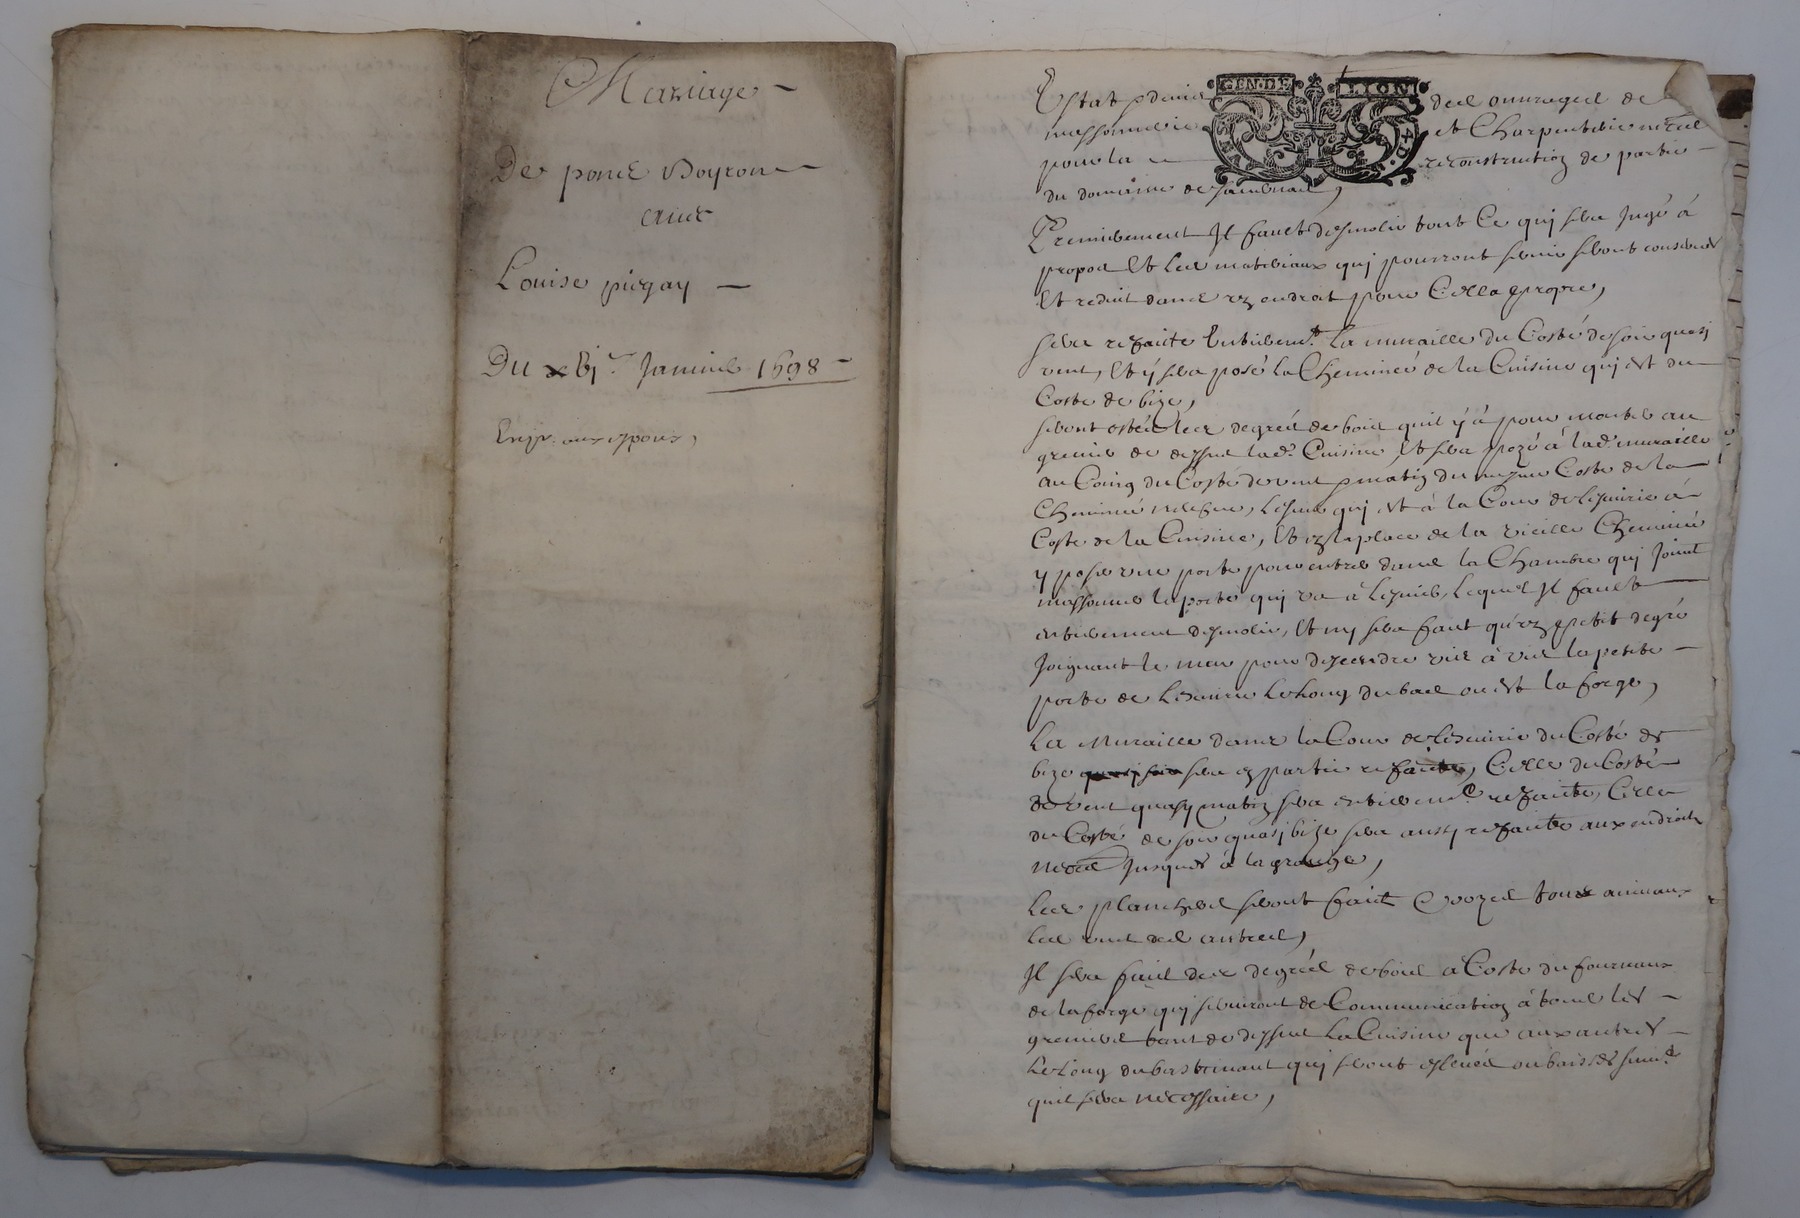 Mariage
De ponce Boyron
avec
Louise pugay
Du xbj.e Janvier 1698
Exp. aux espoux,
GEN. DE LION
Estat & devis des ouvrages de
massonnerie et Charpenterie neces.
pour la reconstruction de partie
du domaine de
Premierement Il fault desmolir tout Ce qui sera Jugé à
propos Et Les materiaux qui pourront servir seront conserves
Et reduit dans un endroit pour Cella propre,
sera refaite Entierem.t La muraille du Costé de soir quasi
vent, Et ÿ sera posé La Cheminée de la Cuisine qui est du
Coste de bize,
seront ostés les degrés de bois quil ÿ à pour monter au
grenier de dessus lad.e Cuisine, Et sera pozé à lad.e muraille
au Coing du Costé de vent & matin du mesme Coste de la
Cheminée qui est à la Cour de Lescuirie à
Coste de la Cuisine, Et en la place de la vieille Cheminée
y poser une porte pour entrer dans la Chambre qui Joint
massonner la porte qui va à Lequel Il fault
entierement desmolir, Et ny sera faut qu'un petit degré
Joignant le mur pour descendre vis à vis la petite
porte de Lescuirie Le Long du bas ou est la forge,
La Muraille dans la Cour de lescuirie du Costé de
bize sera en partie refaitte, Celle du Costé
de vent quasy matin sera entierem.t refaitte, Celle
du Costé de soir quasi bize sera aussy refaitte aux endroits
neces Jusques à la grange,
Les planchers seront fait tous
les uns des autres,
Il sera fait des degrés de bois à Coste du fourneau
de la forge qui serviront de Communication à tous les
greniers tant de dessus La Cuisine que aux autres
Le Long du bastimant qui seront eslevés ou baisses suiv.t
quil sera necessaire,